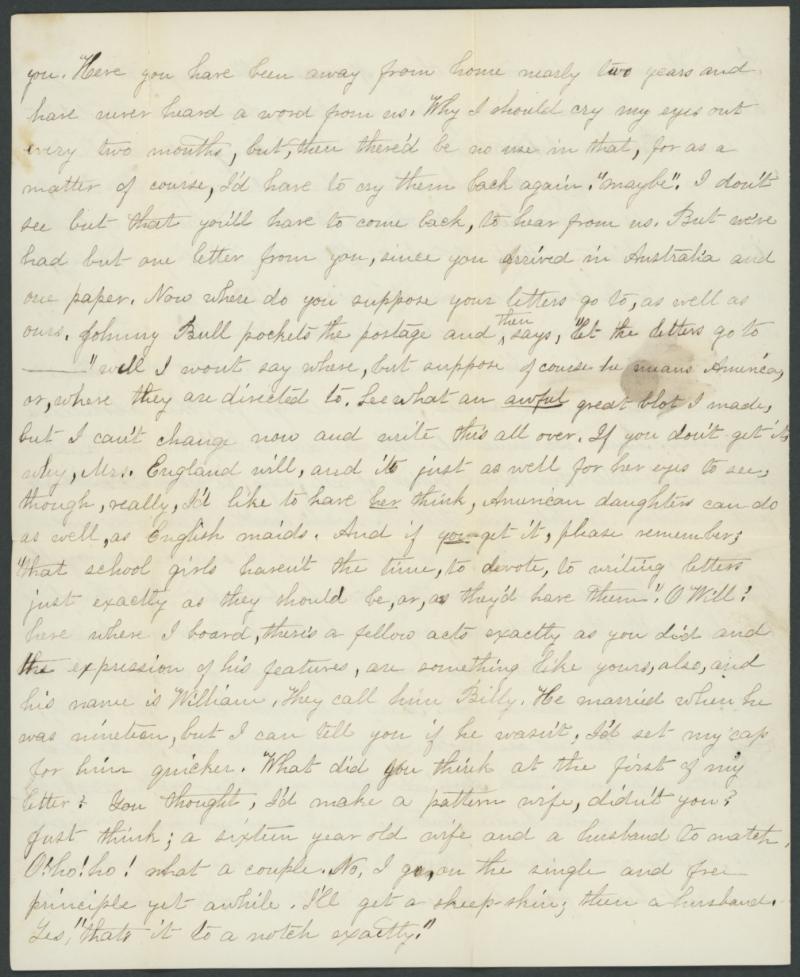 you. Here you have been away from home nearly two years and
have never heard a word from us. Why I should cry my eyes out
every two months, but, then there'd be no use in that, for as a
matter of course, I'd have to cry them back again. "maybe". I don't
see but that you'll have to come back, to hear from us. But we've
had but one letter from you, since you arrived in Australia and
one paper. Now where do you suppose your letters go to, as well as
ours. Johnny Bull pockets the postage and then says, "let the letters go to
———" well I wont say where, but suppose of course he means America,
or, where they are directed to. See what an awful great blot I made,
but I can't change now and write this all over. If you don't get it
why, Mrs. England will, and its just as well for her eyes to see,
though, really, I'd like to have her think, American daughters can do
as well, as English maids. And if you get it, please remember;
"that school girls haven't the time, to devote, to writing letters
just exactly as they should be, or, as they'd have them". O Will!
here where I board, there's a fellow acts exactly as you did and
the expression of his features, are something like yours, also, and
his name is William. They call him Billy. He married when he
was nineteen, but I can tell you if he wasn't, I'd set my cap
for him quicker. What did you think at the first of my
letter? You thought, I'd make a pattern wife, didn't you?
Just think; a sixteen year old wife and a husband to match.
O! ho! ho! what a couple. No, I go, on the single and free
principle yet awhile. I'll get a sheep-skin; then a husband.
Yes, "thats it to a notch exactly."